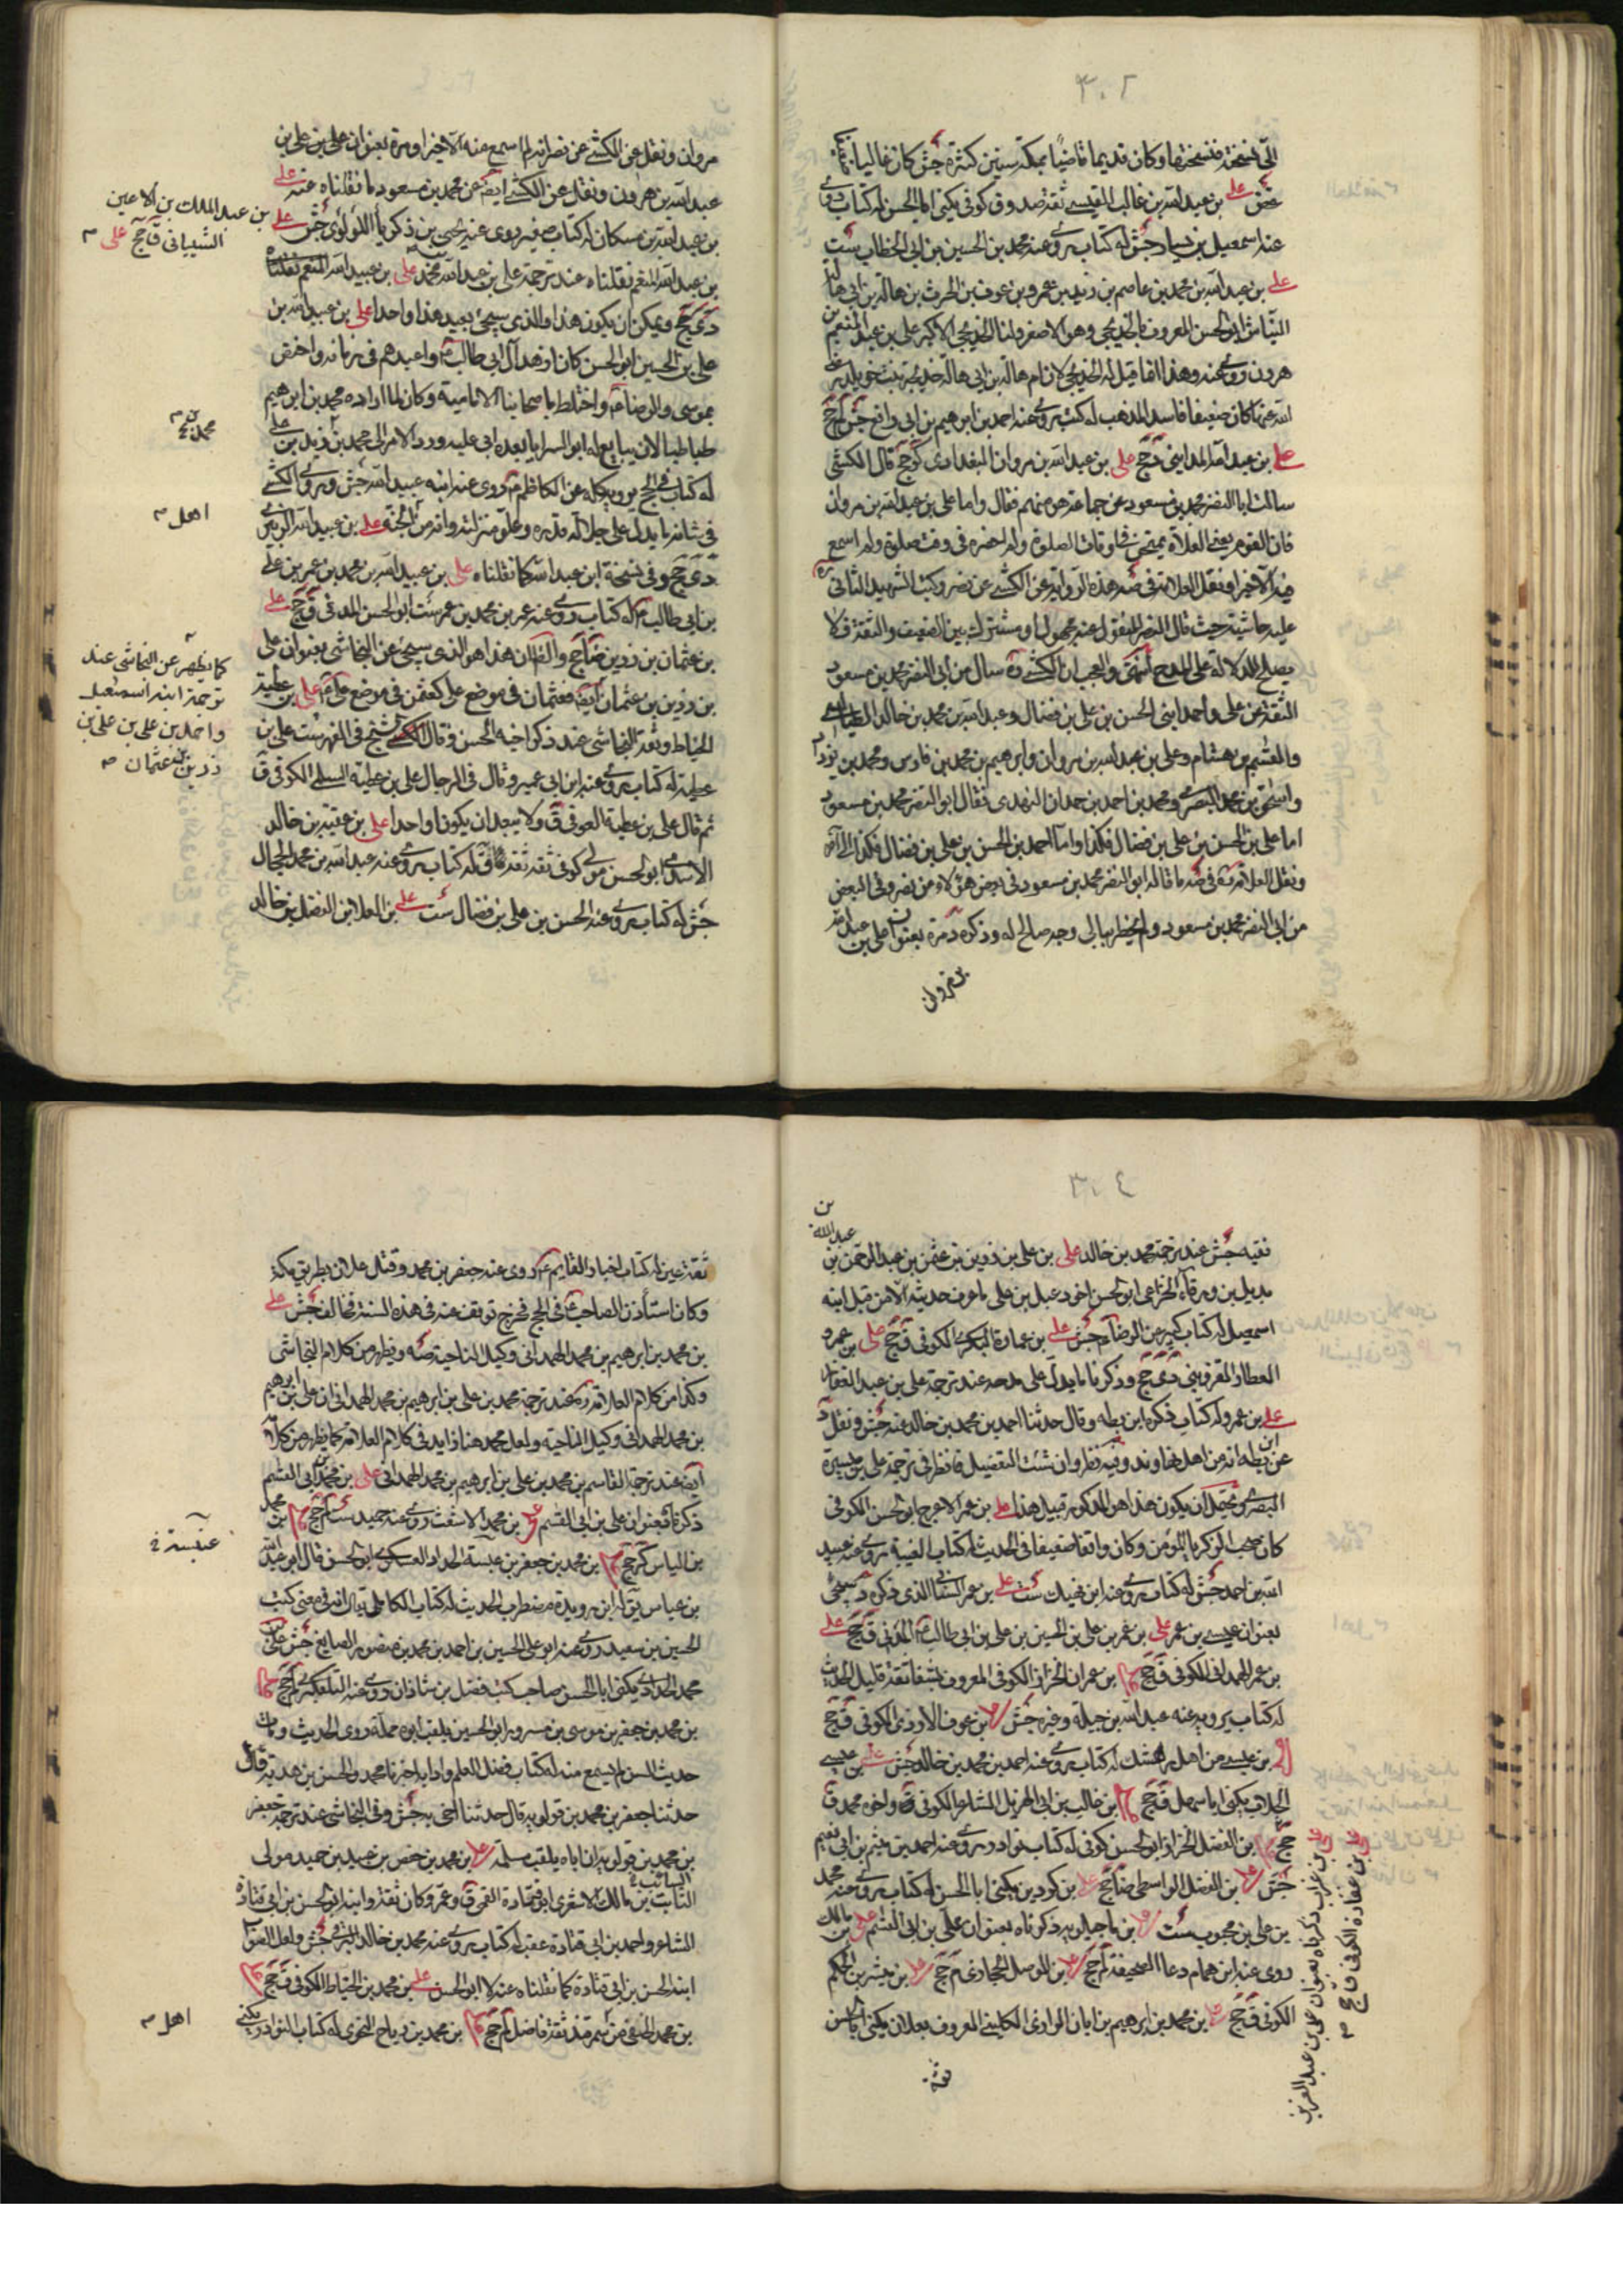 ٣٠٢
الى نسخة فنسختها وكان قديما قاضيا بمكة سنين كثيرة جش كان غاليا
غض على بن عبد الله بن غالب القيسى ثقة صدوق كوفى يكنى ابا الحسن له كتاب روى
عنه اسمعيل بن يسار جش له كتاب روى عنه محمد بن الحسين بن ابى الخطاب ست
على بن عبد الله بن محمد بن عاصم بن زيد بن عمرو بن عوف بن الحرث بن هالة بن ابى هالة
النباش ابو الحسن المعروف بالخديجى وهو الاصغر ولنا الخديجى الاكبر على بن عبد المنعم بن
هرون روى عنه وهذا انما قيل له الخديجى لان ام هالة بن ابى هالة خديجة بنت خويلد رضى
الله عنها كان ضعيفا فاسد المذهب له كتب روى عنه احمد بن ابرهيم بن ابى رافع جش لم جخ
على بن عبد الله المداينى دى جخ على بن عبد الله بن مروان البغدادى كر جخ قال الكشى
سالت ابا النضر محمد بن مسعود عن جماعة هو منهم فقال واما على بن عبد الله بن مروان
فان القوم يعنى الغلاة يمتحن فى اوقات الصلوة ولم احضره فى وقت صلوة ولم اسمع
فيه الا خيرا ونقل العلامة فى صه هذه الرواية عن الكشى عن نضر وكتب الشهيد الثانى ره
عليه حاشية حيث قال النضر المنقول عنه مجهول او مشترك بين الضعيف والثقة فلا
يصلح للدلالة على المدح انتهى والعجب ان الكشى ره سال من ابى النضر محمد بن مسعود
الثقة عن على وأحمد ابنى الحسن بن على بن فضال وعبد الله بن محمد بن خالد الطيالسى
والقسم بن هشام وعلى بن عبد الله بن مروان وابرهيم بن محمد بن فارس ومحمد بن يزداد
واسحق بن محمد البصرى ومحمد بن احمد بن حمدان النهدى فقال ابو النضر محمد بن مسعود
اما على بن الحسن بن على بن فضال فكذا واما احمد بن الحسن بن على بن فضال فكذا الى آخره
ونقل العلامة فى صه ما قاله ابو النضر محمد بن مسعود فى بعض هؤلاء من نضر وفى البعض
من ابى النضر محمد بن مسعود ولم يخطر ببالى وجه صالح له وذكره د مرة بعنوان على بن عبد الله
بن مروان
مروان ونقل عن الكشى عن نضر انه لم اسمع عنه الا خيرا ومرة بعنوان على بن على بن
عبد الله بن هرون ونقل عن الكشى ايضا عن محمد بن مسعود ما نقلناه عنه على
بن عبد الله بن مسكان له كتاب صغير روى عنه يحيى بن زكريا اللؤلؤى جش على
بن عبد الملك بن الاعين
الشيبانى ق جخ على
بن عبد الله المنعم نقلناه عند ترجمة على بن عبد الله محمد على بن عبيد الله المنعم نقلناه
دى جخ ويمكن ان يكون هذا والذى سيجئ بعيد هذا واحدا على بن عبيد الله بن
على بن الحسين ابو الحسن كان ازهد آل ابى طالب واعبدهم فى زمانه واختص
بموسى والرضا واختلط باصحابنا الامامية وكان لما اراده محمد بن ابرهيم
طباطبا لان يبايع له ابو السرايا بعده ابى عليه ورد الامر الى محمد بن زيد بن على
له كتاب فى الحج يرويه كله عن الكاظم روى عنه ابنه عبيد الله جش وروى الكشى
فى شانه ما يدل على جلالة قدره وعلو منزلته وانه من اهل الجنة على بن عبيد الله الزبيرى
دى جخ وفى نسخة ابن عبد الله كما نقلناه على بن عبيد الله بن محمد بن عمر بن على
بن ابى طالب له كتاب روى عنه عمر بن محمد بن عمر ست ابو الحسن المدنى ق جخ على
بن عثمان بن رزين ضا جخ والظ ان هذا هو الذى سيجئ عن النجاشى بعنوان على
بن رزين بن عثمان ايضا فعثمان فى موضع على كعثمن فى موضع على بن عطية
الحناط وثقه النجاشى عند ذكر اخيه الحسن وقال الشيخ فى الفهرست على بن
عطية له كتاب روى عنه ابن ابى عمير وقال فى الرجال على بن عطية السلمى الكوفى ق
ثم قال على بن عطية العوفى ق ولا يبعد ان يكونا واحدا على بن عقبة بن خالد
الاسدى ابو الحسن مولى كوفى ثقة ثقة ق له كتاب روى عنه عبد الله بن محمد الحجال
جش له كتاب روى عنه الحسن بن على بن فضال ست على بن العلا بن الفضل بن خالد
محمد بن
اهل
كما يظهر عن النجاشى عند
ترجمة ابنه اسمعيل
واحمد بن على بن على بن
رزين بن عثمان
٣٠٤
فقيه جش عند ترجمة محمد بن خالد على بن على بن رزين بن عثمن بن عبد الرحمن بن عبد الله بن
بديل بن ورقاء الخزاعى ابو الحسن اخو دعبل بن على ما عرف حديثه الا من قبل ابنه
اسمعيل له كتاب كبير عن الرضا جش على بن عمارة البكرى الكوفى ق جخ على بن عمرو
العطار القزوينى دى جخ وذكرنا ما يدل على مدحه عند ترجمة على بن عبد الغفار
على بن عمرو له كتاب ذكره ابن بطة وقال حدثنا احمد بن محمد بن خالد عنه جش ونقل د
عن ابن بطة انه من اهل نهاوند وفيه نظر وان شئت التفضيل فانظر فى ترجمة على بن ميسرة
البصرى ويحتمل ان يكون هذا هو المذكور قبيل هذا على بن عمر الاعرج ابو الحسن الكوفى
كان صحب زكريا المؤمن وكان واقفا ضعيفا فى الحديث له كتاب الغيبة روى عنه عبيد
الله بن احمد جش له كتاب روى عنه ابن نهيك ست على بن عمر الشيبانى الذى ذكره د سيجئ
بعنوان عيسى بن عمر على بن عمر بن على بن الحسين بن على بن ابى طالب المدنى ق جخ على
بن عمر الهمدانى الكوفى ق جخ على بن عمران الخزاز الكوفى المعروف بشفا ثقة قليل الحديث
له كتاب يرويه عنه عبد الله بن جبلة وغيره جش على بن عوف الازدى الكوفى ق جخ
على بن عيسى من اهل له كتاب روى عنه احمد بن محمد بن خالد جش على بن عيسى
الجلاب يكنى ابا سهل ق جخ على بن غالب بن ابى الهزيل الشاعر الكوفى ق واخوه محمد ق
جخ على بن الفضل الخزاز ابو الحسن كوفى له كتاب نوادر روى عنه احمد بن ميثم بن ابى نعيم
جش على بن الفضل الواسطى ضا جخ على بن كردين يكنى ابا الحسن له كتاب روى عنه محمد
بن على بن محبوب ست على بن ماجيلويه ذكرناه بعنوان على بن ابى القسم على بن مالك
روى عنه ابن همام دعا الصحيفة لم جخ على بن المؤمل البخارى م جخ على بن ميسر بن الحكم
الكوفى ق جخ على بن محمد بن ابرهيم بن ابان الرازى الكلينى المعروف بعلان يكنى ابا الحسن
ثقة
على بن غراب ذكرناه بعنوان على بن عبد العزيز
على بن الكوفى ق جخ
ثقة عين له كتاب اخبار القايم روى عنه جعفر بن محمد وقتل علان بطريق مكة
وكان استأذن الصاحب فى الحج فخرج توقف عنه فى هذه السنة فخالف جش على
بن محمد بن ابرهيم بن محمد الهمدانى وكيل الناحية صه ويظهر من كلام النجاشى
وكذا من كلام العلامة ره عند ترجمة محمد بن على بن ابرهيم بن محمد الهمدانى ان على بن ابرهيم
بن محمد الهمدانى وكيل الناحية ولعل محمد هنا زايد فى كلام العلامة كما يظهر من كلامه
ايضا عند ترجمة القاسم بن محمد بن على بن ابرهيم بن محمد الهمدانى على بن محمد بن ابى القسم
ذكرناه بعنوان على بن ابى القسم على بن محمد الاشعث روى عنه حميد ست لم جخ على بن محمد
بن الياس كر جخ على بن محمد بن جعفر بن عنبسة الحداد العسكرى ابو الحسن قال ابو عبد الله
بن عياش يق له ابن رويدة مضطرب الحديث له كتاب الكامل يقال انه فى معنى كتب
الحسين بن سعيد روى عنه ابو على الحسين بن احمد بن محمد بن منصور الصايغ جش على بن
محمد الحدادى يكنى ابا الحسن صاحب كتب فضل بن شاذان روى عنه التلعكبرى لم جخ على
بن محمد بن جعفر بن موسى بن مسرور ابو الحسين يلقب ابوه مملة روى الحديث ومات
حديث السن لم يسمع منه له كتاب فضل العلم وادابه اخبرنا محمد والحسن بن هدية قالا
حدثنا جعفر بن محمد بن قولويه قال حدثنا اخى به جش وفى النجاشى عند ترجمة جعفر
بن محمد بن قولويه ان اباه يلقب مسلمة على بن محمد بن حفص بن عبيد بن حميد مولى
السائب بن مالك الاشعرى ابو قتادة القمى ق وعمر وكان ثقة وابنه ابو الحسن بن ابى قتادة
الشاعر واحمد بن ابى قتادة عقب له كتاب روى عنه محمد بن خالد البرقى جش ولعل الصواب
ابنه الحسن بن ابى قتادة كما نقلناه عنه لا ابو الحسن على بن محمد بن الحناط الكوفى ق جخ على
بن محمد الخلقى من سمرقند ثقة فاضل لم جخ على بن محمد بن رياح النحوى له كتاب النوادر يكنى
عنبسة
اهل